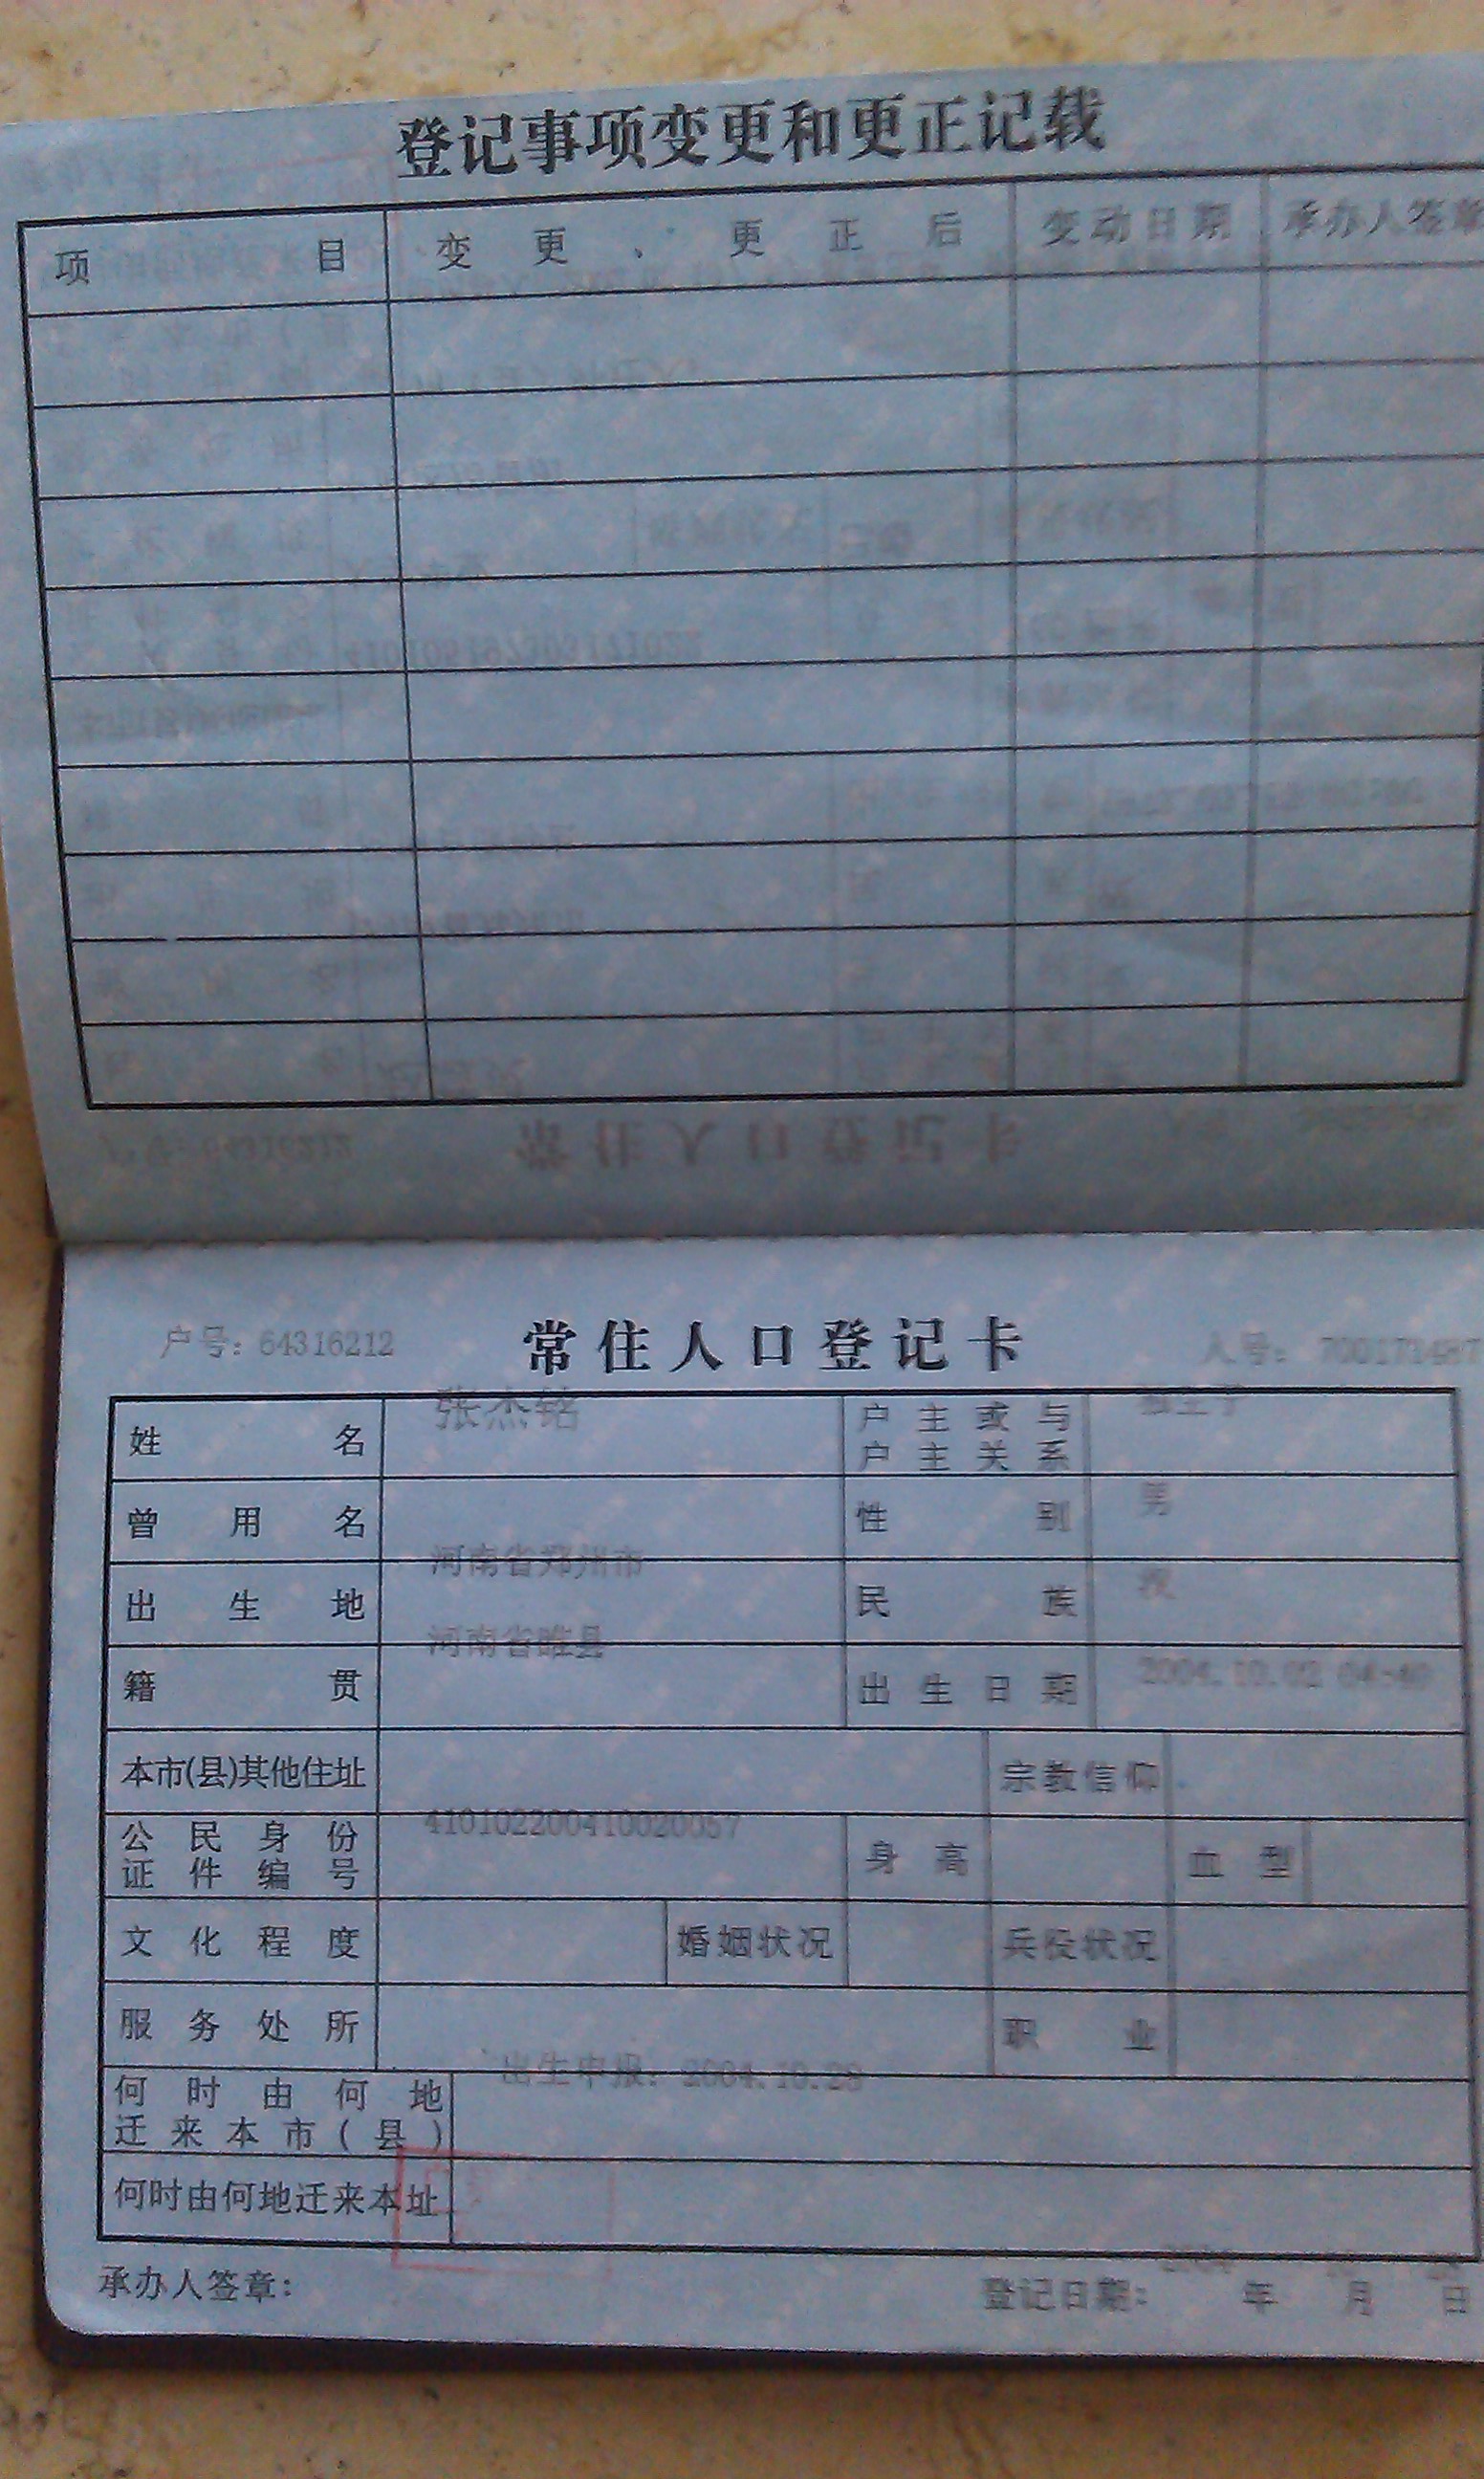 登记事项变更和更正记载
项目 变更、更正后 变动日期 承办人签章
户号：64316212 常住人口登记卡 人号：700173487
姓名 张杰铭 户主或与户主关系
曾用名 性别 男
出生地 河南省郑州市 民族 汉
籍贯 河南省睢县 出生日期 2004.10.02 04:40
本市(县)其他住址 宗教信仰
公民身份证件编号 410102200410020057 身高 血型
文化程度 婚姻状况 兵役状况
服务处所 职业
何时由何地迁来本市(县) 出生申报：2004.10.28
何时由何地迁来本址
承办人签章： 登记日期：2004年 月 日